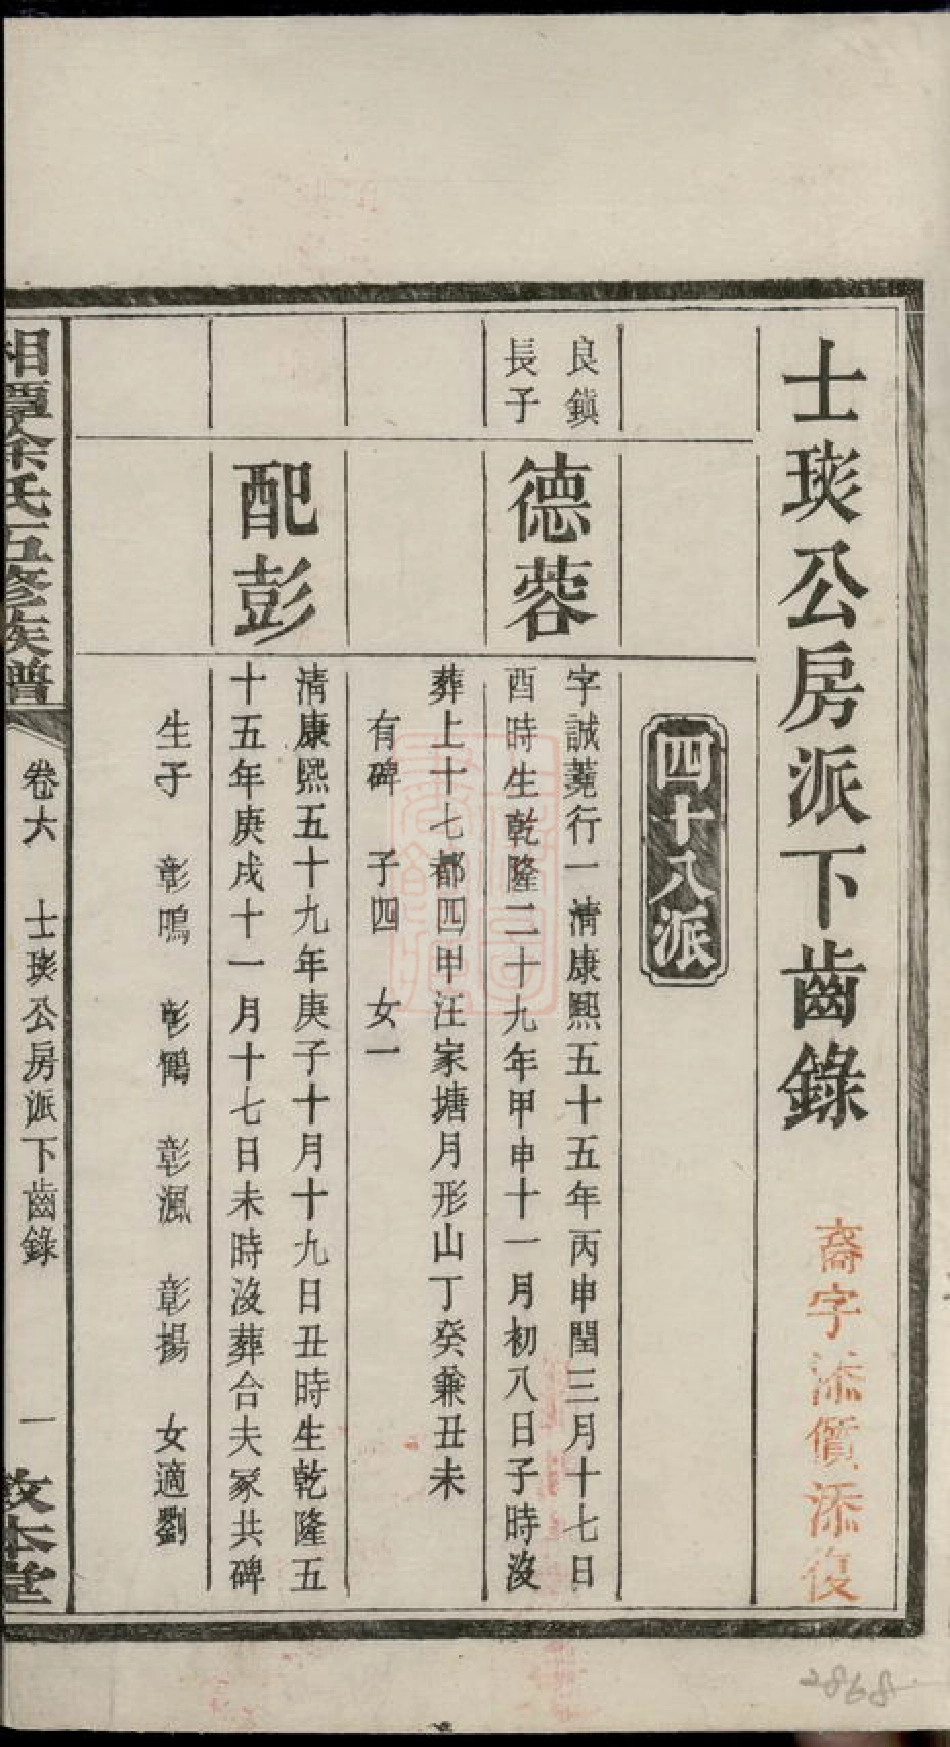 士琰公房派下齒錄
裔字添價添復
四十八派
良鎮
長子
德蓉
字誠蕘行一清康熙五十五年丙申閏三月十七日
酉時生乾隆二十九年甲申十一月初八日子時沒
葬上十七都四甲汪家塘月形山丁癸兼丑未
有碑 子四 女一
配彭
清康熙五十九年庚子十月十九日丑時生乾隆五
十五年庚戌十一月十七日未時沒葬合夫冢共碑
生子 彰鳴 彰鶴 彰渢 彰揚 女適劉
湘潭余氏五修族譜
卷六 士琰公房派下齒錄
一
敦本堂
2868